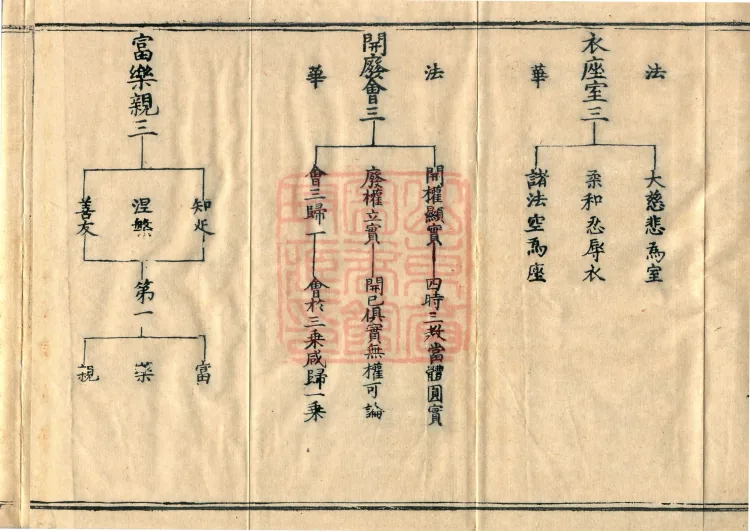 法
衣座室三
華
大慈悲爲室
柔和忍辱衣
諸法空爲座
法
開廢會三
華
開權顯實
四時三教當體圓實
廢權立實
開已俱實無權可論
會三歸一
會於三乗咸歸一乗
富樂親三
知足
涅槃
善友
第一
富
樂
親